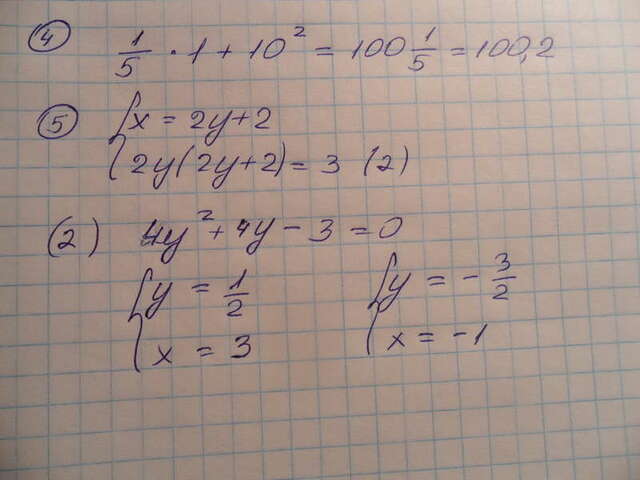 ④ 1/5 · 1 + 10² = 100 1/5 = 100,2
⑤ { x = 2y+2
2y(2y+2) = 3 (2)
(2) 4y² + 4y − 3 = 0
{ y = 1/2 { y = − 3/2
x = 3 x = −1